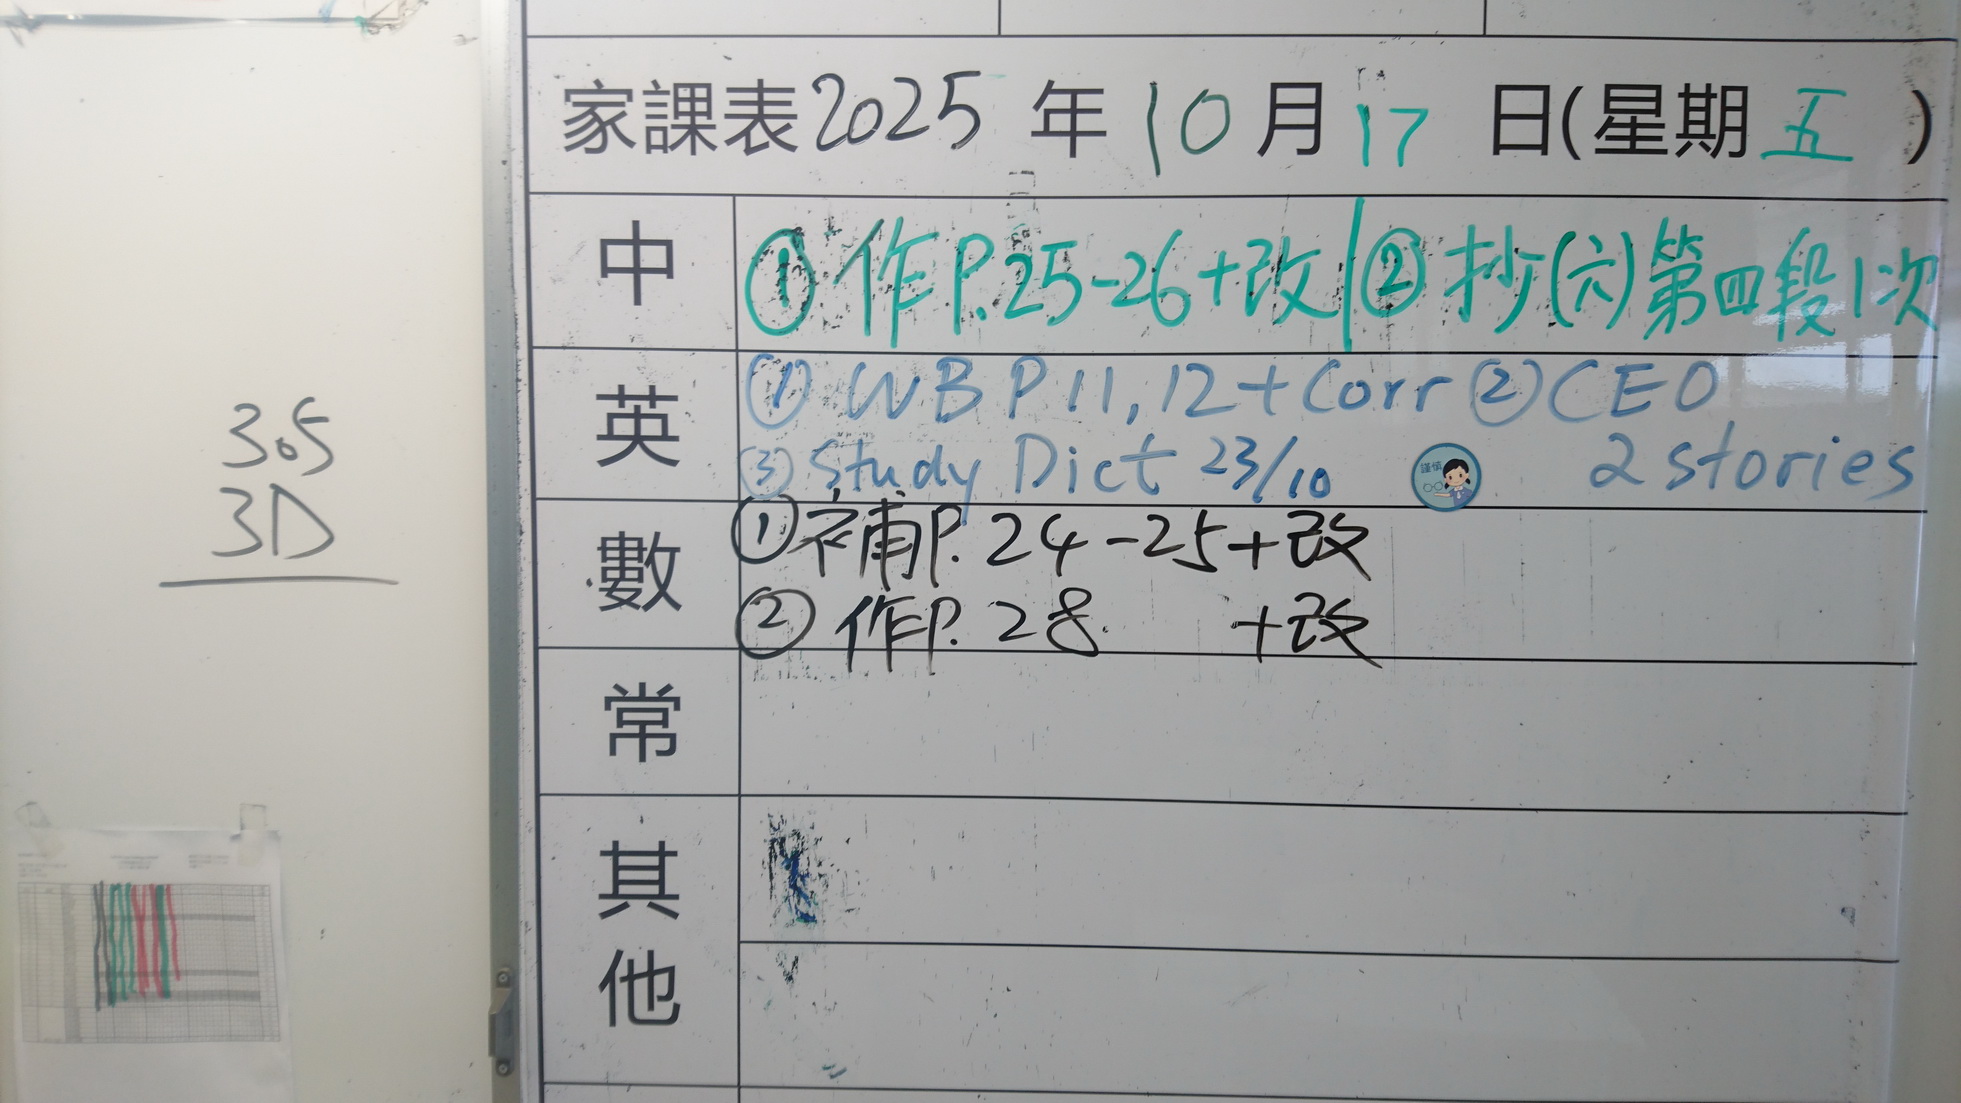 家課表2025年10月17日(星期五)
中
①作P.25-26+改|②抄(六)第四段1次
英
①WB P11,12+Corr ②CEO
③Study Dict 23/10
謹慎
2 stories
數
①補P.24-25+改
②作P.28 +改
常
其他
305
3D